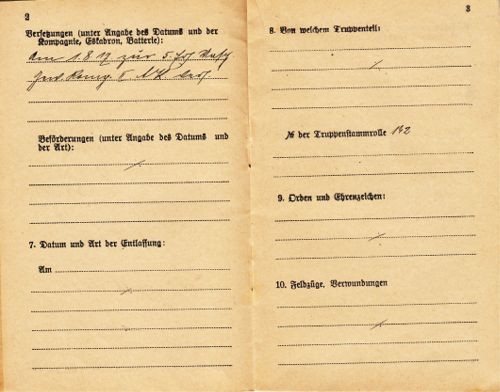 2
Versetzungen (unter Angabe des Datums und der
Kompagnie, Eskadron, Batterie):
Am 1 8 17 zur 5.
Beförderungen (unter Angabe des Datums und
der Art):
7. Datum und Art der Entlassung:
Am
3
8. Von welchem Truppenteil:
№ der Truppenstammrolle 162
9. Orden und Ehrenzeichen:
10. Feldzüge, Verwundungen